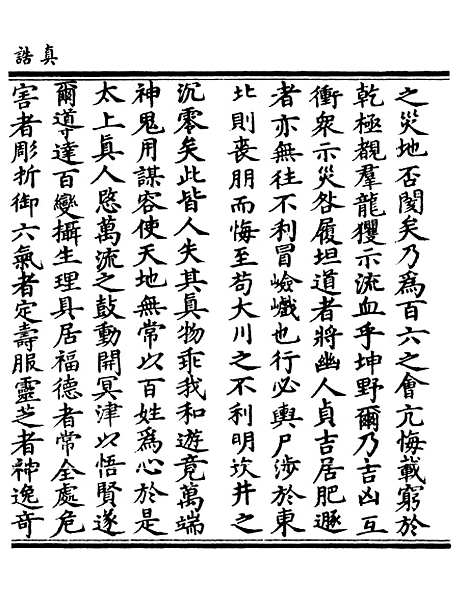 真誥
之災地否閡矣乃為百六之會亢悔載窮於
乾極覩羣龍玃示流血乎坤野爾乃吉凶互
衝衆示災咎履坦道者將幽人貞吉居肥遯
者亦無往不利冒嶮巇也行必輿尸涉於東
北則喪朋而悔至苟大川之不利明坎井之
沉零矣此皆人失其真物乖我和遊竟萬端
神鬼用謀容使天地無常以百姓為心於是
太上真人愍萬流之鼓動開冥津以悟賢遂
爾導達百變攝生理具居福德者常全處危
害者彫折御六氣者定壽服靈芝者神逸奇